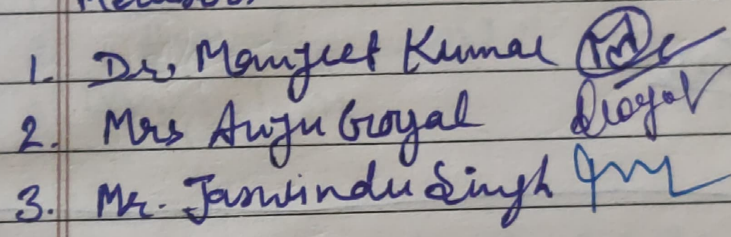 1. Dr. Manjeet Kumar
2. Mrs Anju Goyal Goyal
3. Mr. Jaswinder Singh